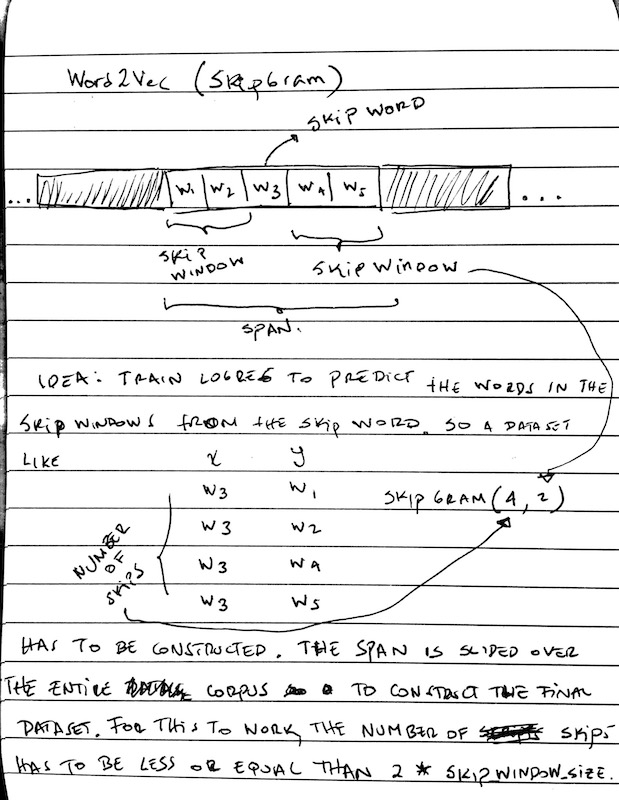 Word2Vec (SkipGram)
SKIP WORD
... W1 W2 W3 W4 W5 ...
SKIP WINDOW
SKIP WINDOW
SPAN.
IDEA: TRAIN LOGREG TO PREDICT THE WORDS IN THE
SKIP WINDOWS FROM THE SKIP WORD. SO A DATASET
LIKE x y
W3 W1
SKIP GRAM (4, 2)
W3 W2
W3 W4
W3 W5
NUMBER OF SKIPS
HAS TO BE CONSTRUCTED. THE SPAN IS SLIDED OVER
THE ENTIRE CORPUS TO CONSTRUCT THE FINAL
DATASET. FOR THIS TO WORK, THE NUMBER OF SKIPS
HAS TO BE LESS OR EQUAL THAN 2 * SKIP_WINDOW_SIZE.